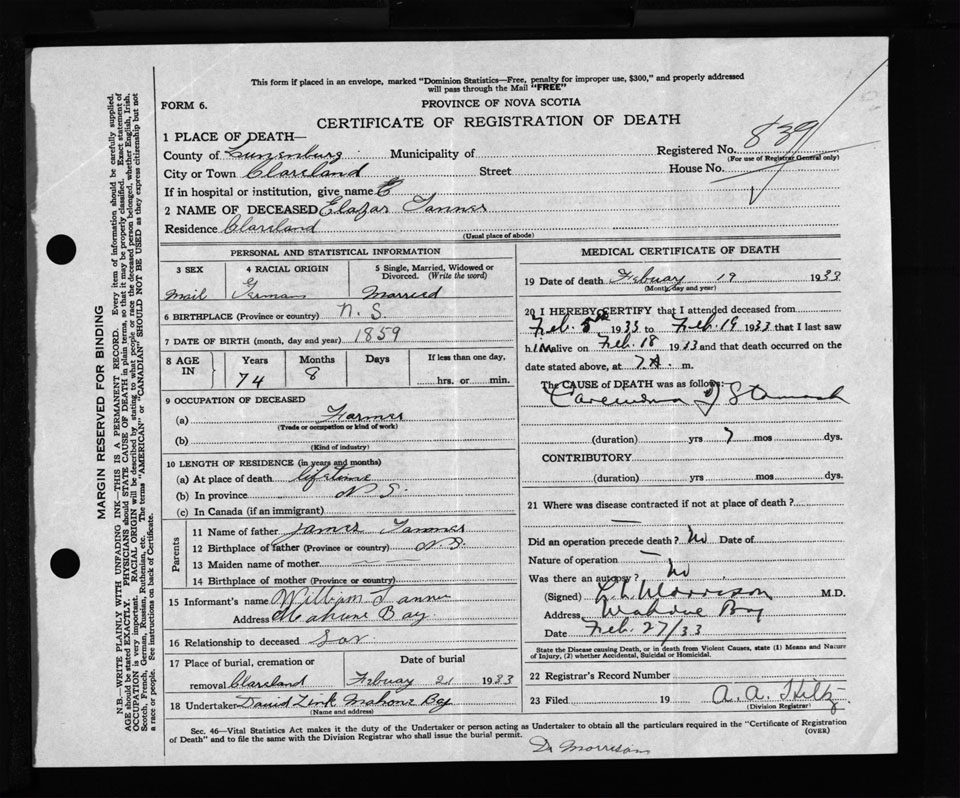 This form if placed in an envelope, marked "Dominion Statistics—Free, penalty for improper use, $300," and properly addressed
will pass through the Mail "FREE"
FORM 6.
PROVINCE OF NOVA SCOTIA
CERTIFICATE OF REGISTRATION OF DEATH
1 PLACE OF DEATH—
County of Lunenburg Municipality of Registered No. 839
(For use of Registrar General only)
City or Town Clareland Street House No.
If in hospital or institution, give name
2 NAME OF DECEASED Elazar Tanner
Residence Clareland
(Usual place of abode)
PERSONAL AND STATISTICAL INFORMATION
3 SEX 4 RACIAL ORIGIN 5 Single, Married, Widowed or
Divorced. (Write the word)
Mail German Married
6 BIRTHPLACE (Province or country) N. S.
7 DATE OF BIRTH (month, day and year) 1859
8 AGE IN Years Months Days If less than one day,
74 8 hrs. or min.
9 OCCUPATION OF DECEASED
(a) Farmer
(Trade or occupation or kind of work)
(b)
(Kind of industry)
10 LENGTH OF RESIDENCE (in years and months)
(a) At place of death lifetime
(b) In province N S.
(c) In Canada (if an immigrant)
Parents
11 Name of father James Tanner
12 Birthplace of father (Province or country) N.S.
13 Maiden name of mother — —
14 Birthplace of mother (Province or country)
15 Informant's name William Tanner
Address Mahone Bay
16 Relationship to deceased Son
17 Place of burial, cremation or Date of burial
removal Clareland Febuay 21 1933
18 Undertaker David Zink Mahone Bay
(Name and address)
MEDICAL CERTIFICATE OF DEATH
19 Date of death Febuay 19 1933
(Month, day and year)
20 I HEREBY CERTIFY that I attended deceased from
Feb. 5th 1933 to Feb. 19 1933 that I last saw
h im alive on Feb. 18 1933 and that death occurred on the
date stated above, at 7 A. m.
The CAUSE of DEATH was as follows:
Carcinoma of Stomach
(duration) yrs 7 mos dys.
CONTRIBUTORY
(duration) yrs mos dys.
21 Where was disease contracted if not at place of death?
—
Did an operation precede death? No Date of
Nature of operation —
Was there an autopsy? No
(Signed) Morrison M.D.
Address Mahone Bay
Date Feb. 27/33
State the Disease causing Death, or in death from Violent Causes, state (1) Means and Nature
of Injury, (2) whether Accidental, Suicidal or Homicidal.
22 Registrar's Record Number
23 Filed 19 A. A. Hiltz
(Division Registrar)
Sec. 46—Vital Statistics Act makes it the duty of the Undertaker or person acting as Undertaker to obtain all the particulars required in the "Certificate of Registration
of Death" and to file the same with the Division Registrar who shall issue the burial permit.
(OVER)
Dr Morrison
MARGIN RESERVED FOR BINDING
N.B.—WRITE PLAINLY WITH UNFADING INK—THIS IS A PERMANENT RECORD. Every item of information should be carefully supplied.
AGE should be stated EXACTLY. PHYSICIANS should STATE CAUSE OF DEATH in plain terms, so that it may be properly classified. Exact statement of
OCCUPATION is very important. RACIAL ORIGIN will be described by stating to what people or race the deceased person belonged, whether English, Irish,
Scotch, French, German, Russian, Ruthenian, etc. The terms "AMERICAN" or "CANADIAN" SHOULD NOT BE USED as they express citizenship but not
a race or people. See instructions on back of Certificate.